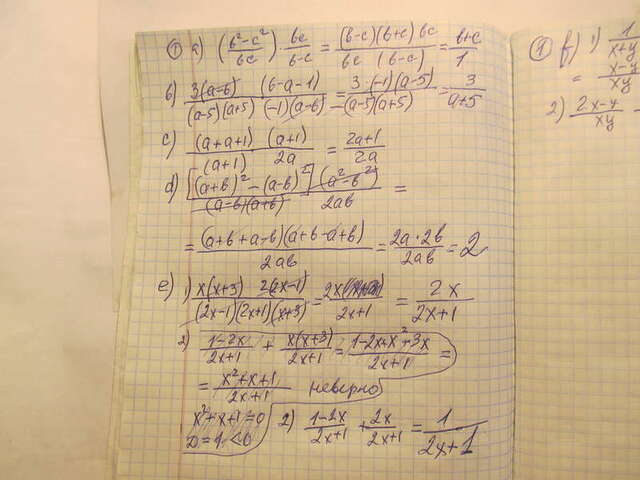 ① a) (b²-c²/bc) · bc/b-c = (b-c)(b+c)bc/bc(b-c) = b+c/1
b) 3(a-b)/(a-5)(a+5) (b-a-1)/(-1)(a-b) = 3(-1)(a-5)/-(a-5)(a+5) = 3/a+5
c) (a+a+1)/(a+1) (a+1)/2a = 2a+1/2a
d) [(a+b)²-(a-b)²](a²-b²)/(a-b)(a+b) 2ab =
= (a+b+a-b)(a+b-a+b)/2ab = 2a·2b/2ab = 2
e) 1) x(x+3) 2(2x-1)/(2x-1)(2x+1)(x+3) = 2x/2x+1 = 2x/2x+1
2) 1-2x/2x+1 + x(x+3)/2x+1 = 1-2x+x²+3x/2x+1 =
= x²+x+1/2x+1 неверно
x²+x+1=0
D=1<0
2) 1-2x/2x+1 + 2x/2x+1 = 1/2x+1
① f) 1) 1/x+y
= x-y/xy
2) 2x-y/xy -